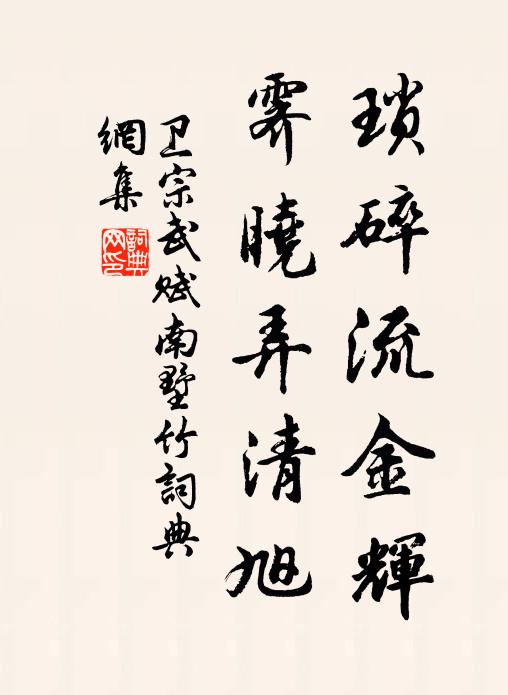 瑣碎流金輝
霽曉弄清旭
卫宗武赋南墅竹詞典
網集
詞典網印